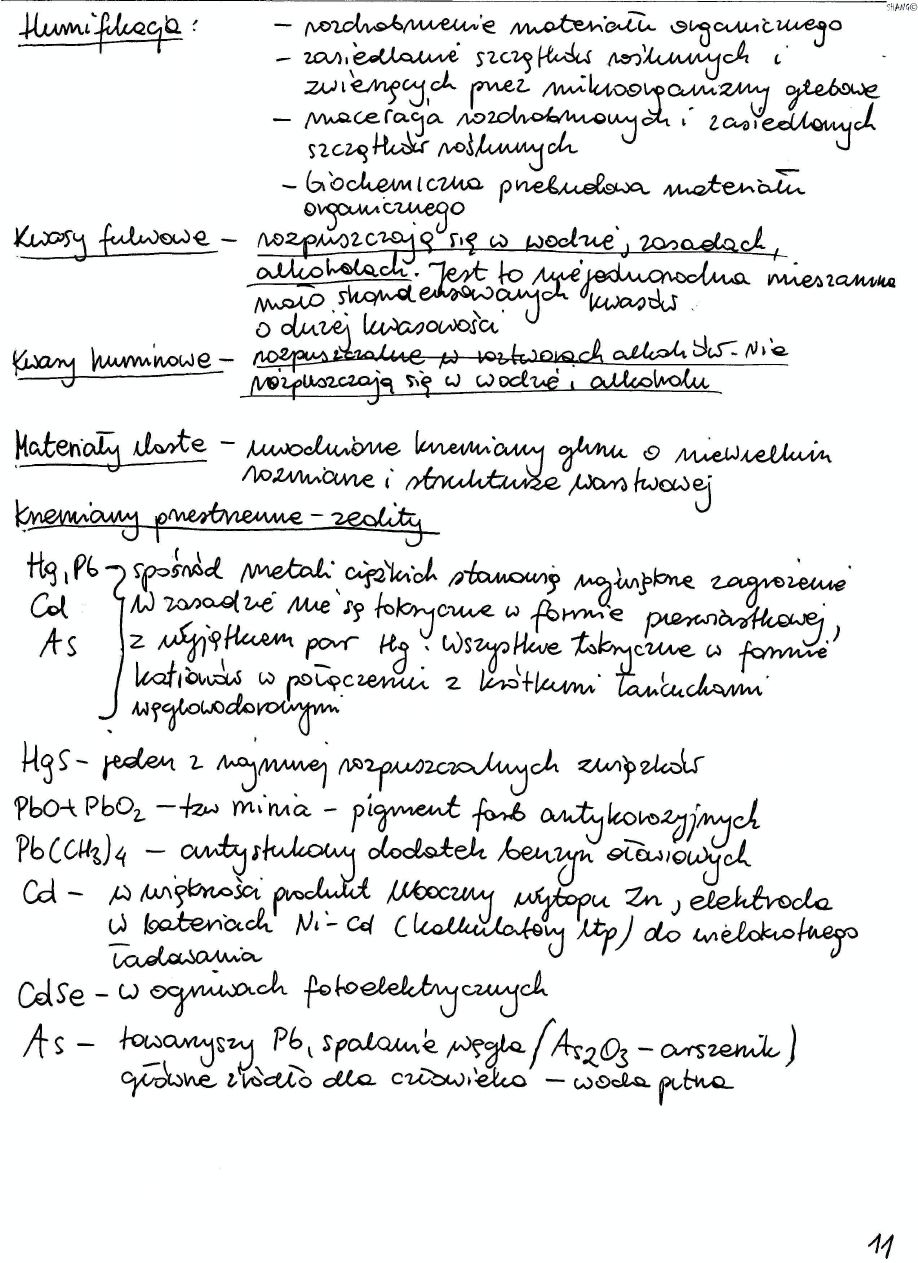 SHANG©
Humifikacja: – rozdrobnienie materiału organicznego
– zasiedlanie szczątków roślinnych i
zwierzęcych przez mikroorganizmy glebowe
– maceracja rozdrobnionych i zasiedlonych
szczątków roślinnych
– biochemiczna przebudowa materiału
organicznego
Kwasy fulwowe – rozpuszczają się w wodzie, zasadach,
alkoholach. Jest to niejednorodna mieszanina
mało skondensowanych kwasów
o dużej kwasowości
Kwasy huminowe – rozpuszczalne w roztworach alkoholów. Nie
rozpuszczają się w wodzie i alkoholu
Materiały ilaste – uwodnione krzemiany glinu o niewielkim
rozmiarze i strukturze warstwowej
Krzemiany przestrzenne – zeolity
Hg, Pb spośród metali ciężkich stanowią największe zagrożenie
Cd W zasadzie nie są toksyczne w formie pierwiastkowej,
As z wyjątkiem par Hg. Wszystkie toksyczne w formie
kationów w połączeniu z krótkimi łańcuchami
węglowodorowymi
HgS – jeden z najmniej rozpuszczalnych związków
PbO + PbO2 – tzw minia – pigment farb antykorozyjnych
Pb(CH3)4 – antystukowy dodatek benzyn ołowiowych
Cd – w większości produkt uboczny wytopu Zn, elektroda
w bateriach Ni-Cd (kalkulatory itp) do wielokrotnego
ładowania
CdSe – w ogniwach fotoelektrycznych
As – towarzyszy Pb, spalanie węgla (As2O3 – arszenik)
główne źródło dla człowieka – woda pitna
11